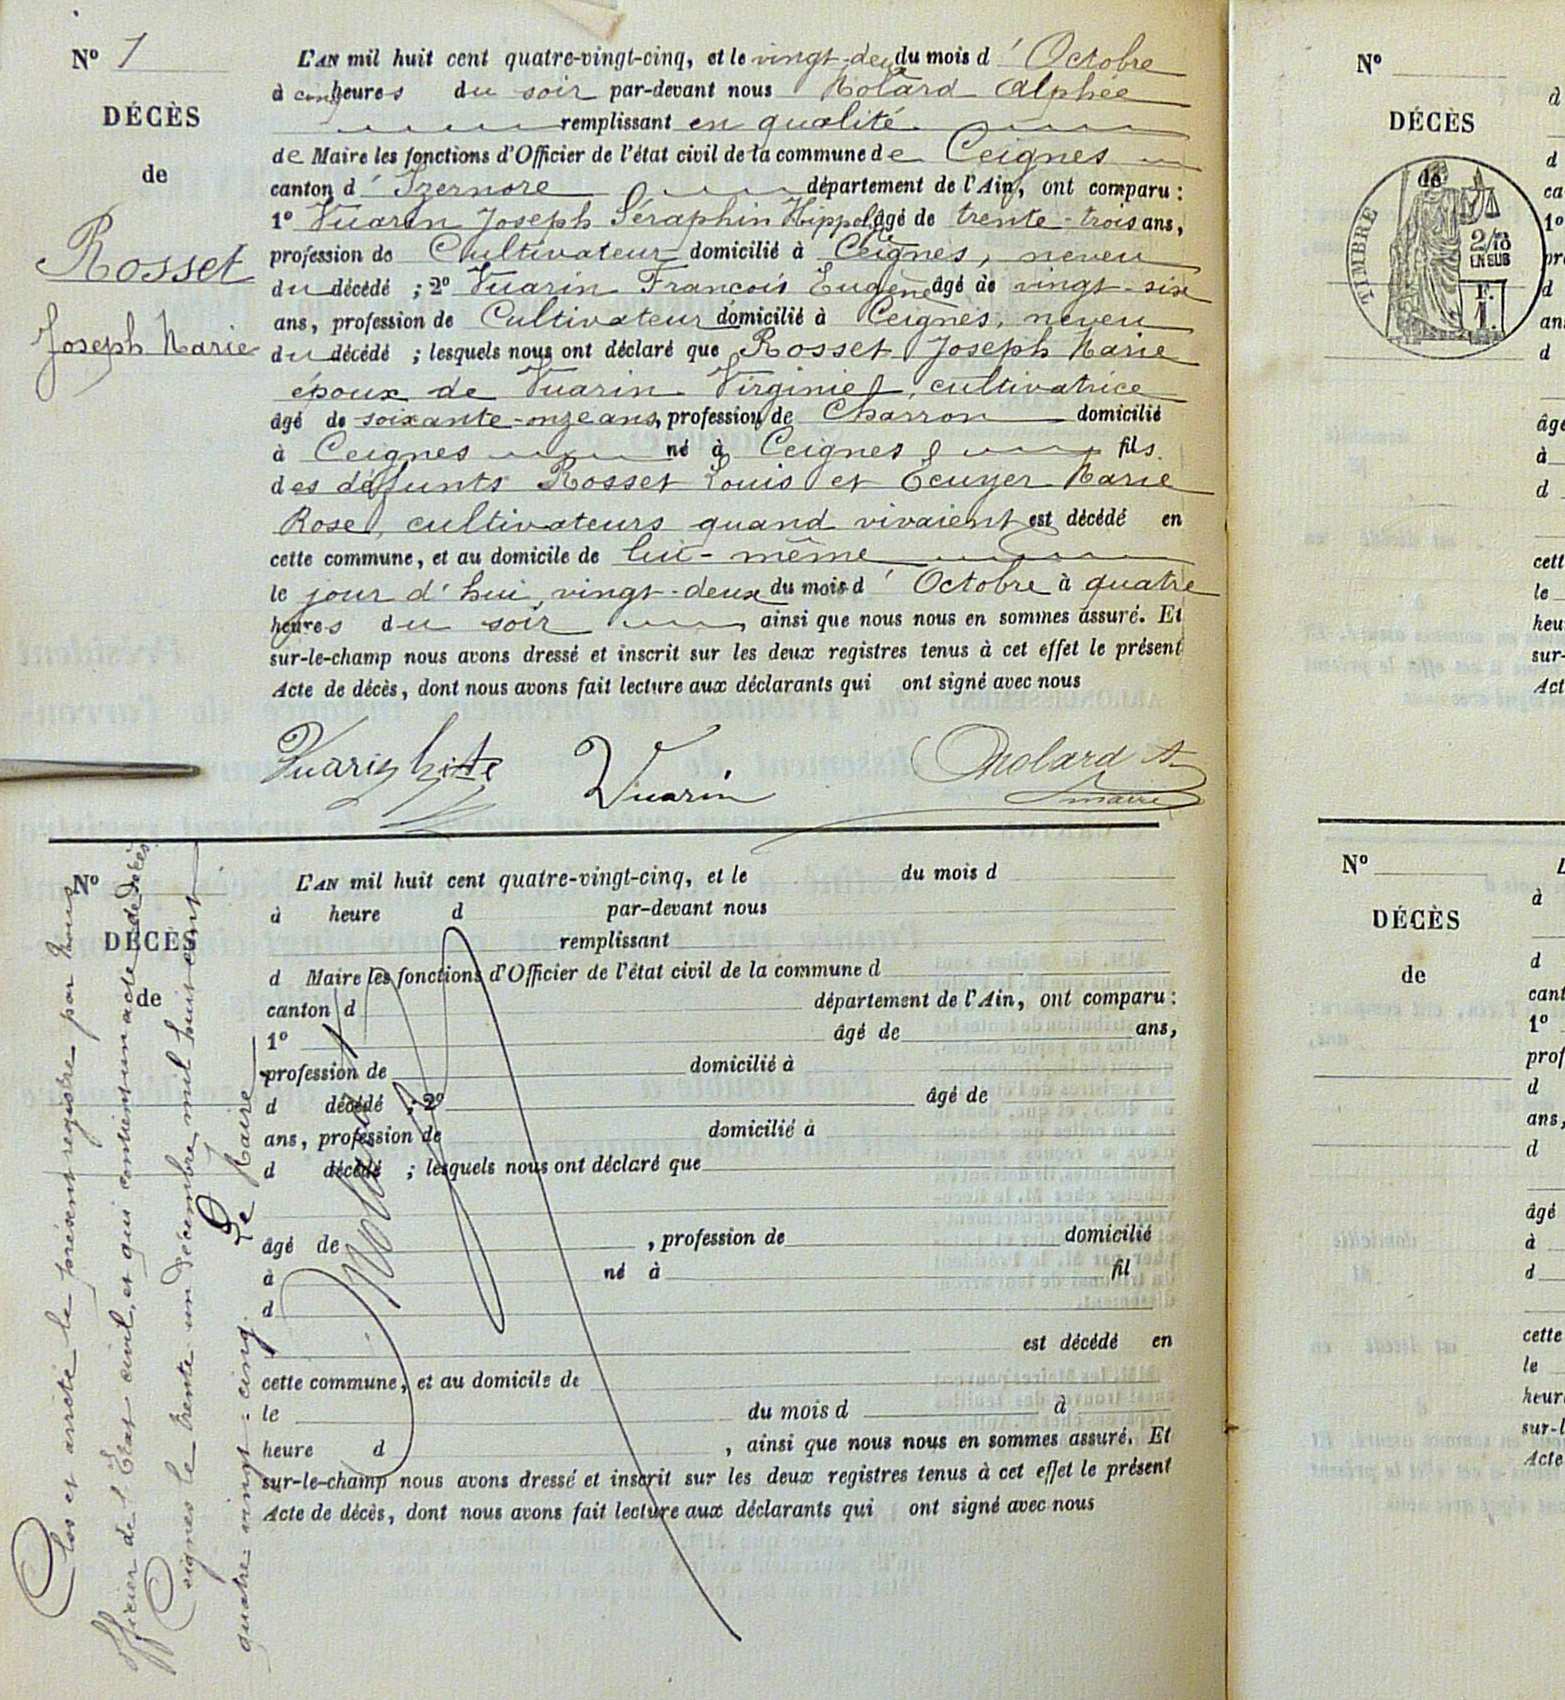 N° 1
DÉCÈS
de
Rosset
Joseph Marie
L'AN mil huit cent quatre-vingt-cinq, et le vingt-deux du mois d'Octobre
à cinq heures du soir par-devant nous Molard Alphée
remplissant en qualité
de Maire les fonctions d'Officier de l'état civil de la commune de Ceignes
canton d'Izernore département de l'Ain, ont comparu :
1° Vuarin Joseph Séraphin Hippolyte âgé de trente-trois ans,
profession de Cultivateur domicilié à Ceignes, neveu
du décédé ; 2° Vuarin François Eugène âgé de vingt-six
ans, profession de Cultivateur domicilié à Ceignes, neveu
du décédé ; lesquels nous ont déclaré que Rosset Joseph Marie
époux de Vuarin Virginie, cultivatrice
âgé de soixante-onze ans, profession de Charron domicilié
à Ceignes né à Ceignes fils
des défunts Rosset Louis et Ecuyer Marie
Rose, cultivateurs quand vivaient est décédé en
cette commune, et au domicile de lui-même
le jour d'hui, vingt-deux du mois d'Octobre à quatre
heures du soir, ainsi que nous nous en sommes assuré. Et
sur-le-champ nous avons dressé et inscrit sur les deux registres tenus à cet effet le présent
Acte de décès, dont nous avons fait lecture aux déclarants qui ont signé avec nous
Vuarin Vuarin Molard A.
maire
N°
DÉCÈS
de
L'AN mil huit cent quatre-vingt-cinq, et le du mois d
à heure d par-devant nous
remplissant
d Maire les fonctions d'Officier de l'état civil de la commune d
canton d département de l'Ain, ont comparu :
1° âgé de ans,
profession de domicilié à
d décédé ; 2° âgé de
ans, profession de domicilié à
d décédé ; lesquels nous ont déclaré que
âgé de , profession de domicilié
à né à fil
d
est décédé en
cette commune, et au domicile de
le du mois d à
heure d , ainsi que nous nous en sommes assuré. Et
sur-le-champ nous avons dressé et inscrit sur les deux registres tenus à cet effet le présent
Acte de décès, dont nous avons fait lecture aux déclarants qui ont signé avec nous
Clos et arrêté le présent registre par Nous
officier de l'Etat civil, et qui contient un acte de décès
Ceignes le trente un Décembre mil huit cent
quatre-vingt-cinq. Le Maire
Molard
N°
DÉCÈS
de
TIMBRE
2/10
EN SUS
d
d
ca
1°
pr
d
ans
d
âgé
à
d
cett
le
heu
sur-
Act
N°
DÉCÈS
de
L
à
d
cant
1°
prof
d
ans,
d
âgé
à
d
cette
le
heure
sur-l
Acte